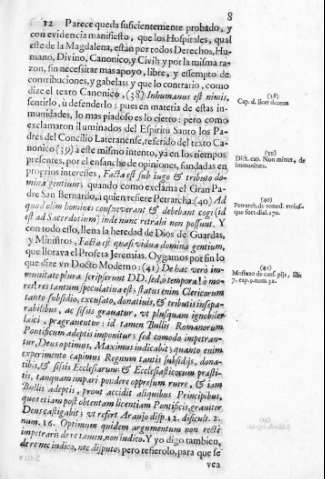 8
12 Parece queda suficientemente probado, y
con evidencia manifiesto, que los Hospitales, qual
este de la Magdalena, están por todos Derechos, Hu-
mano, Divino, Canonico, y Civil; y por la misma ra-
zon, sin necesitar mas apoyo, libre, y essempto de
contribuciones, y gabelas: y que lo contrario, como
dize el texto Canonico, (38) Inhumanus est nimis,
sentirlo, ù defenderlo; pues en materia de estas in-
munidades, lo mas piadoso es lo cierto: pero como
exclamaron iluminados del Espiritu Santo los Pa-
dres del Concilio Lateranense, referido del texto Ca-
nonico (39) à este mismo intento, yà en los tiempos
presentes, por el ensanche de opiniones, fundadas en
proprios interesses, Facta est sub iugo & tributo do-
mina gentium, quando como exclama el Gran Pa-
dre San Bernardo, à quien refiere Petrarcha: (40) Ad
quod clim homines consueverant & debebant cogi (id
est ad Sacerdotium) inde nunc retrahi non possunt. Y
con todo esso, llena la heredad de Dios de Guardas,
y Ministros, Facta est quasi vidua domina gentium,
que llorava el Profeta Jeremias. Oygamos por fin lo
que dize un Docto Moderno: (41) De hac verò im-
munitate plura scripserunt DD. sed, ò tempora! ò mo-
res! res tantum speculativa est; statut enim Clericorum
tanto subsidio, excusato, donativis, & tributis insepa-
rabilibus, ac sisis gravatur, vt plusquam ignobiles
laici, praegraventur: id tamen Bullis Romanorum
Pontificum adeptis imponitur; sed comodo impetran-
tur, Deus optimus, Maximus iudicabit; quanto enim
experimento capimus Regnum tantis subsidijs, dona-
tibis, & sisis Ecclesiarum & Ecclesiasticorum praesti-
tis, tanquam impari pondere oppresum ruere, & iam
Bullis adeptis, prout accidit aliquibus Principibus,
quos etiam post obtentam licentiam Pontificis, graviter
Deus castigabit; vt refert Araujo disp. 12. dificult. 2.
num. 16. Optimum quidem argumentum non rectè
impetrari: de re tamen, non iudico. Y yo digo tambien,
de re nec indico, nec disputo; pero refierolo, para que se
vea
(38)
(39)
Dict. cap. Non minus, de
immunitate.
(40)
(41)